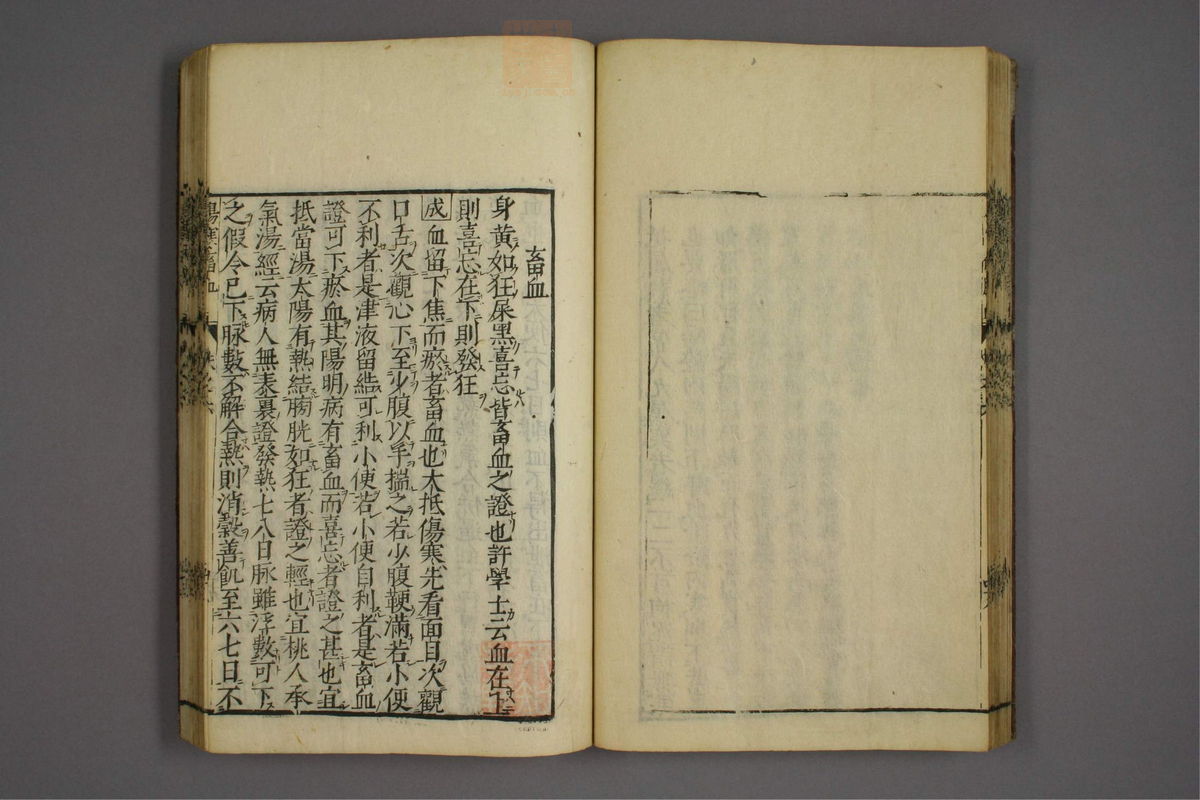 畜血
身黄如狂屎黑喜忘皆畜血之證也許學士云血在上
則喜忘在下則發狂
成血留下焦而瘀者畜血也大抵傷寒先看面目次觀
口舌次觀心下至少腹以手揣之若少腹鞕滿若小便
不利者是津液留結可利小便若小便自利者是畜血
證可下瘀血其陽明病有畜血而喜忘者證之甚也宜
抵當湯太陽有熱結膀胱如狂者證之輕也宜桃人承
氣湯經云病人無表裏證發熱七八日脉雖浮數可下
之假令已下脉數不解合熱則消穀善飢至六七日不
傷寒畜血